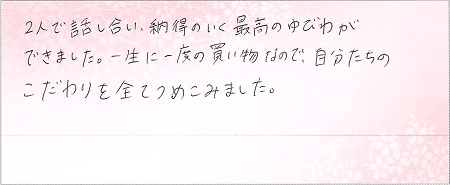 2人で話し合い、納得のいく最高のゆびわが
できました。一生に一度の買い物なので、自分たちの
こだわりを全てつめこみました。